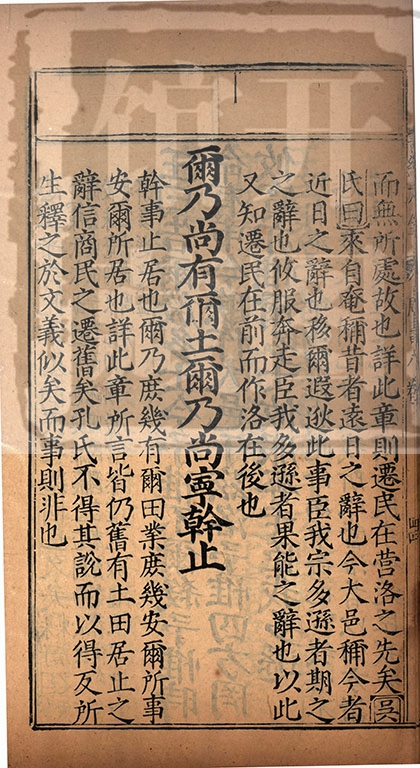 而無所處故也詳此章則遷民在營洛之先矣吳
氏曰來自奄稱昔者遠日之辭也今大邑稱今者
近日之辭也移爾遐逖比事臣我宗多遜者期之
之辭也攸服奔走臣我多遜者果能之辭也以此
又知遷民在前而作洛在後也
爾乃尚有爾土爾乃尚寧幹止
幹事止居也爾乃庶幾有爾田業庶幾安爾所事
安爾所居也詳此章所言皆仍舊有土田居止之
辭信商民之遷舊矣孔氏不得其說而以得反所
生釋之於文義似矣而事則非也